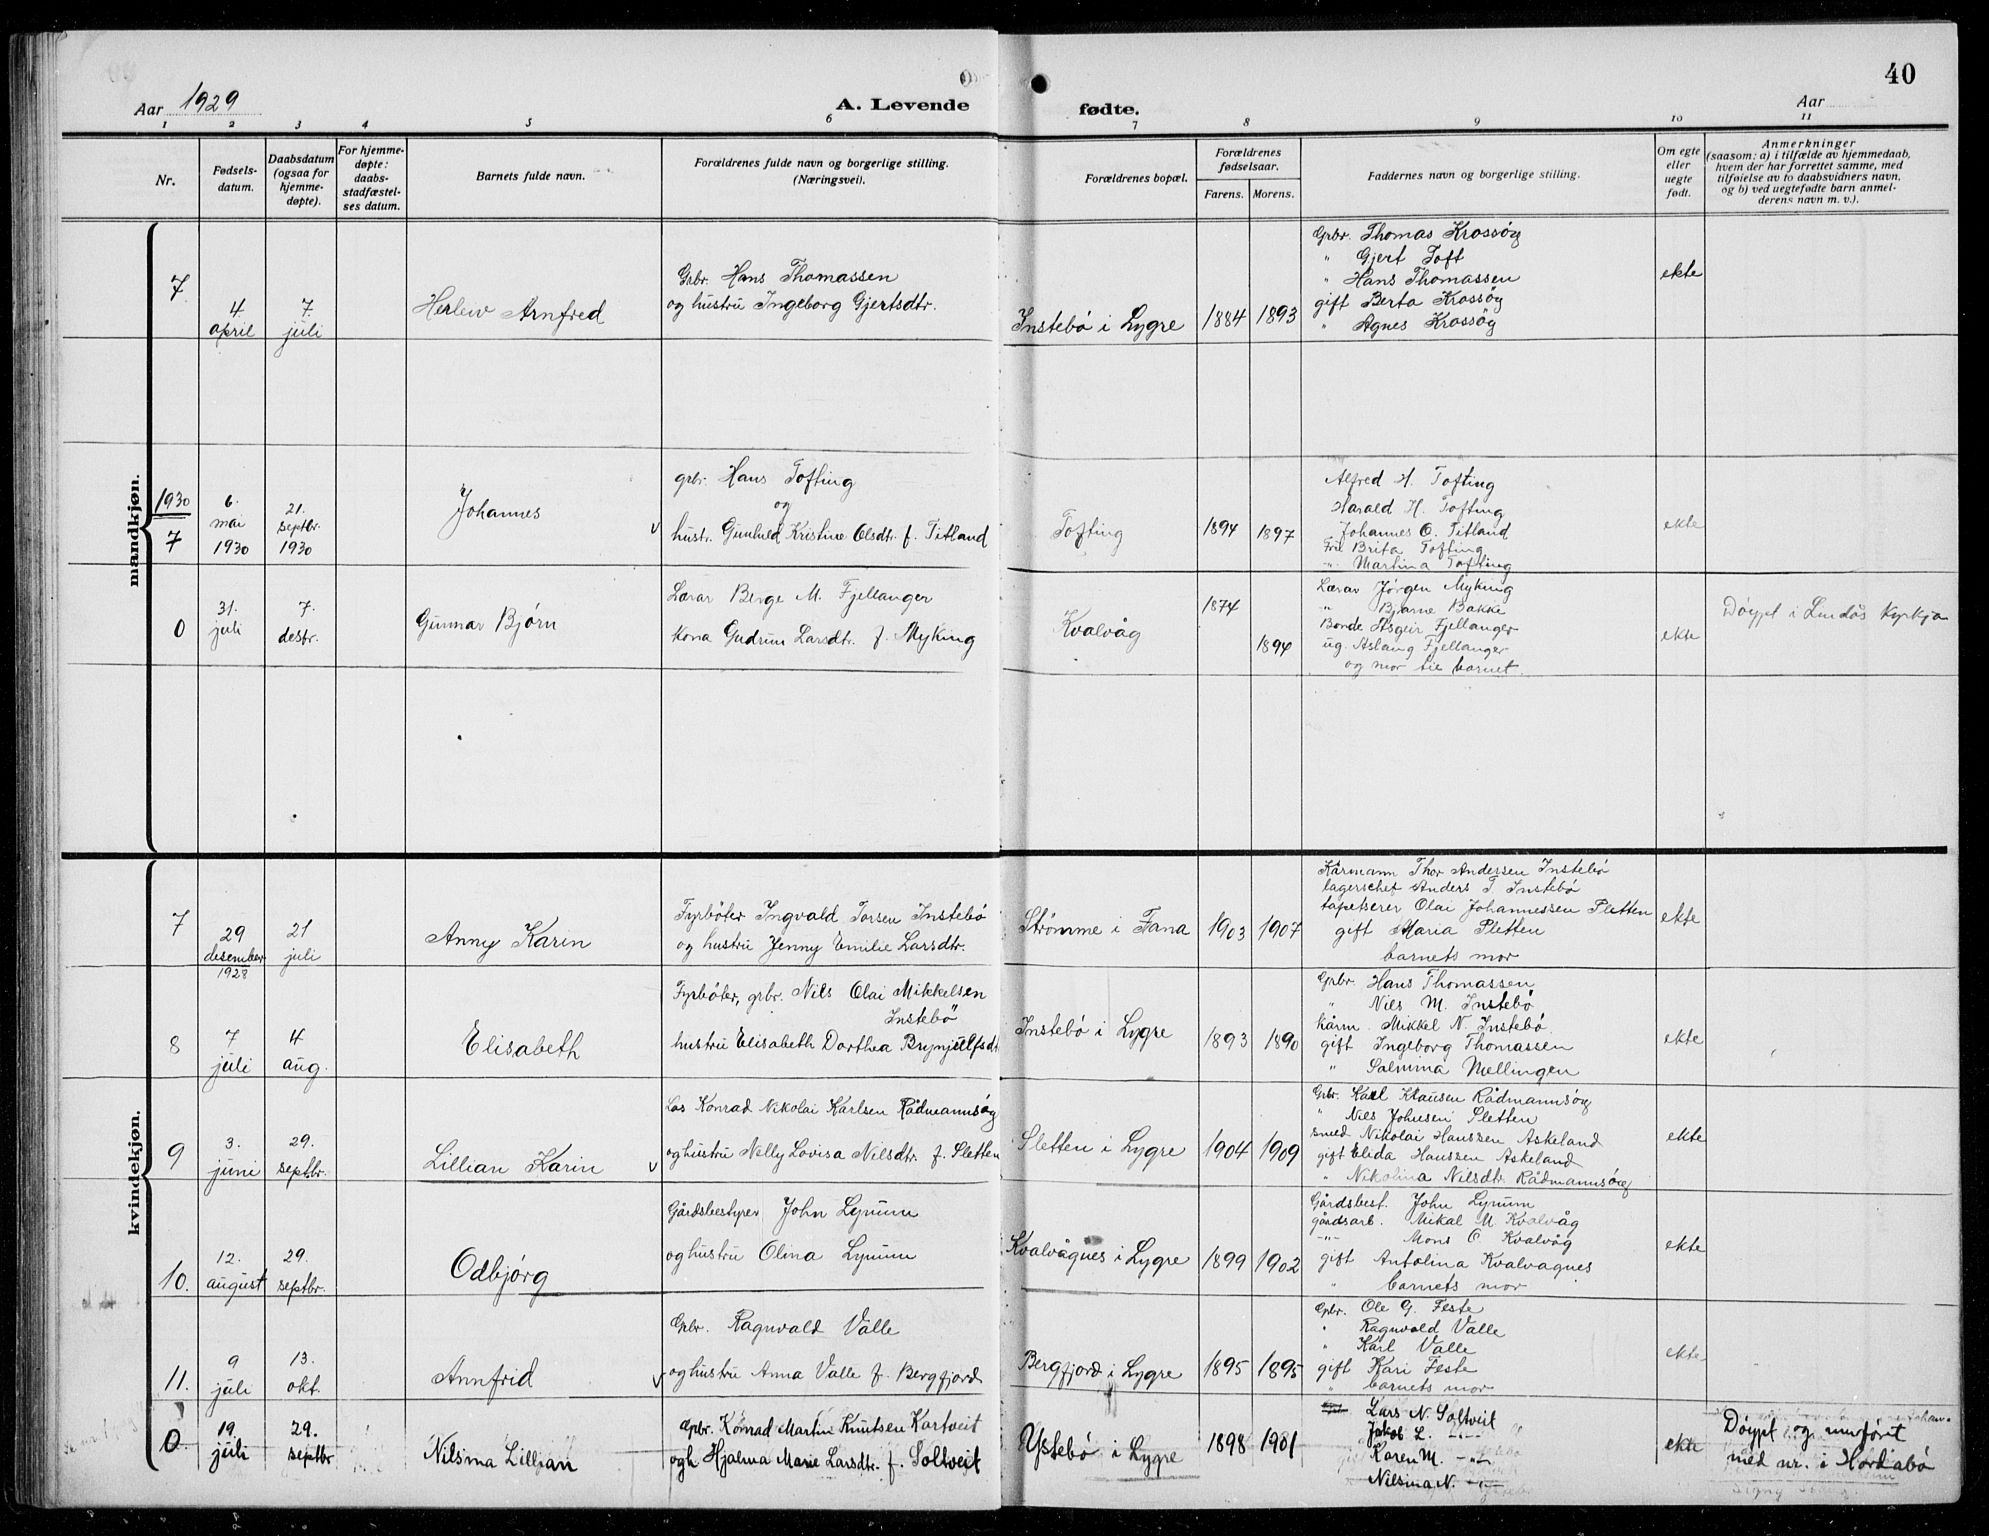 40
Aar 1929
A. Levende
fødte.
Aar
1 2 3 4 5 6 7 8 9 10 11
Nr.
Fødsels-
datum.
Daabsdatum
(ogsaa for
hjemme-
døpte).
For hjemme-
døpte:
daabs-
stadfæstel-
ses datum.
Barnets fulde navn.
Forældrenes fulde navn og borgerlige stilling.
(Næringsvei).
Forældrenes bopæl.
Forældrenes
fødselsaar.
Farens. Morens.
Faddernes navn og borgerlige stilling.
Om egte
eller
uegte
født.
Anmerkninger
(saasom: a) i tilfælde av hjemmedaab,
hvem der har forrettet samme, med
tilføielse av to daabsvidners navn,
og b) ved uegtefødte barn anmel-
derens navn m. v.).
mandkjøn.
7
4.
april
7.
juli
Herlew Arnfred
Grbr. Hans Thomassen
og hustru Ingeborg Gjertsdtr.
Instebö i Lygre
1884 1893
Grbr. Thomas Krossöy
" Gjert Toft
" Hans Thomassen
gift Berta Krossöy
" Agnes Krossöy
ekte
1930
7
6.
mai
1930
21.
septbr.
1930
Johannes
grbr. Hans Tofting
og
hustr. Gunhild Kristine Olsdtr. f. Titland
Tofting
1894 1897
Alfred H. Tofting
Harald H. Tofting
Johannes O. Titland
Frk Brita Tofting
" Martina Tofting
ekte
0
31.
juli
7.
desbr.
Gunnar Bjørn
Lærar Berge M. Fjellanger
Kona Gudrun Larsdtr. f. Myking
Kvalvåg
1874
1894
Lærar Jørgen Myking
" Bjarne Bakke
Bonde Asgeir Fjellanger
ug. Aslaug Fjellanger
og mor til barnet.
ekte
Döypt i Lindås Kyrkja
kvindekjøn.
7
29
desember
1928
21
juli
Anny Karin
Fyrböter Ingvald Torsen Instebö
og hustru Jenny Emilie Larsdtr.
Strømme i Fana
1903 1907
Kårmann Thor Andersen Instebö
lagerschef Anders T. Instebö
tapetserer Olai Johannessen Pletten
gift Maria Pletten
barnets mor
ekte
8
7
juli
4
aug.
Elisabeth
Fyrböter, grbr. Nils Olai Mikkelsen
Instebö
hustru Elisabeth Dorthea Brynjulfsdt
Instebö i Lygre
1893 1890
Grbr. Hans Thomassen
" Nils M. Instebö
kårm. Mikkel N. Instebö.
gift Ingeborg Thomassen
" Salmina Mellingen
ekte
9
3.
juni
29.
septbr.
Lillian Karin
Los Konrad Nikolai Karlsen Rådmannsöy
og hustru Nelly Lovisa Nilsdtr. f. Sletten
Sletten i Lygre
1904 1909
Grbr. Karl Klausen Rådmannsöy
" Nils Johnsen Sletten
smed Nikolai Hanssen Askeland
gift Elida Hanssen Askeland
" Nikolina Nilsdtr. Rådmannsöy
ekte
10.
12.
august
29.
septbr.
Odbjörg
Gårdsbestyrer John Lynum
og hustru Olina Lynum
Kvalvågnes i Lygre
1899 1902
Gårdsbest. John Lynum
gårdsarb. Mikal M. Kvalvåg
-"- Mons O. Kvalvåg
gift Antolina Kvalvagnes
" barnets mor
ekte
11.
9
juli
13.
okt.
Annfrid
Grbr. Ragnvald Valle
og hustru Anna Valle f. Bergfjord
Bergfjord i Lygre
1895 1895
Grbr. Ole G. Feste
" Ragnvald Valle
Karl Valle
gift Kari Feste
" barnets mor
ekte
0.
19.
juli
29.
septbr
Nilsma Lilljan
Grbr. Konrad Martin Knutsen Kartveit
og h Hjalma Marie Larsdtr. f. Soltveit
Ystebö i Lygre
1898 1901
Lars N. Soltveit
Jakob L. -"-
Karen M. -"-
Nilsina N. -"-
ekte
Döypt og innfört
med nr. i Hordabö